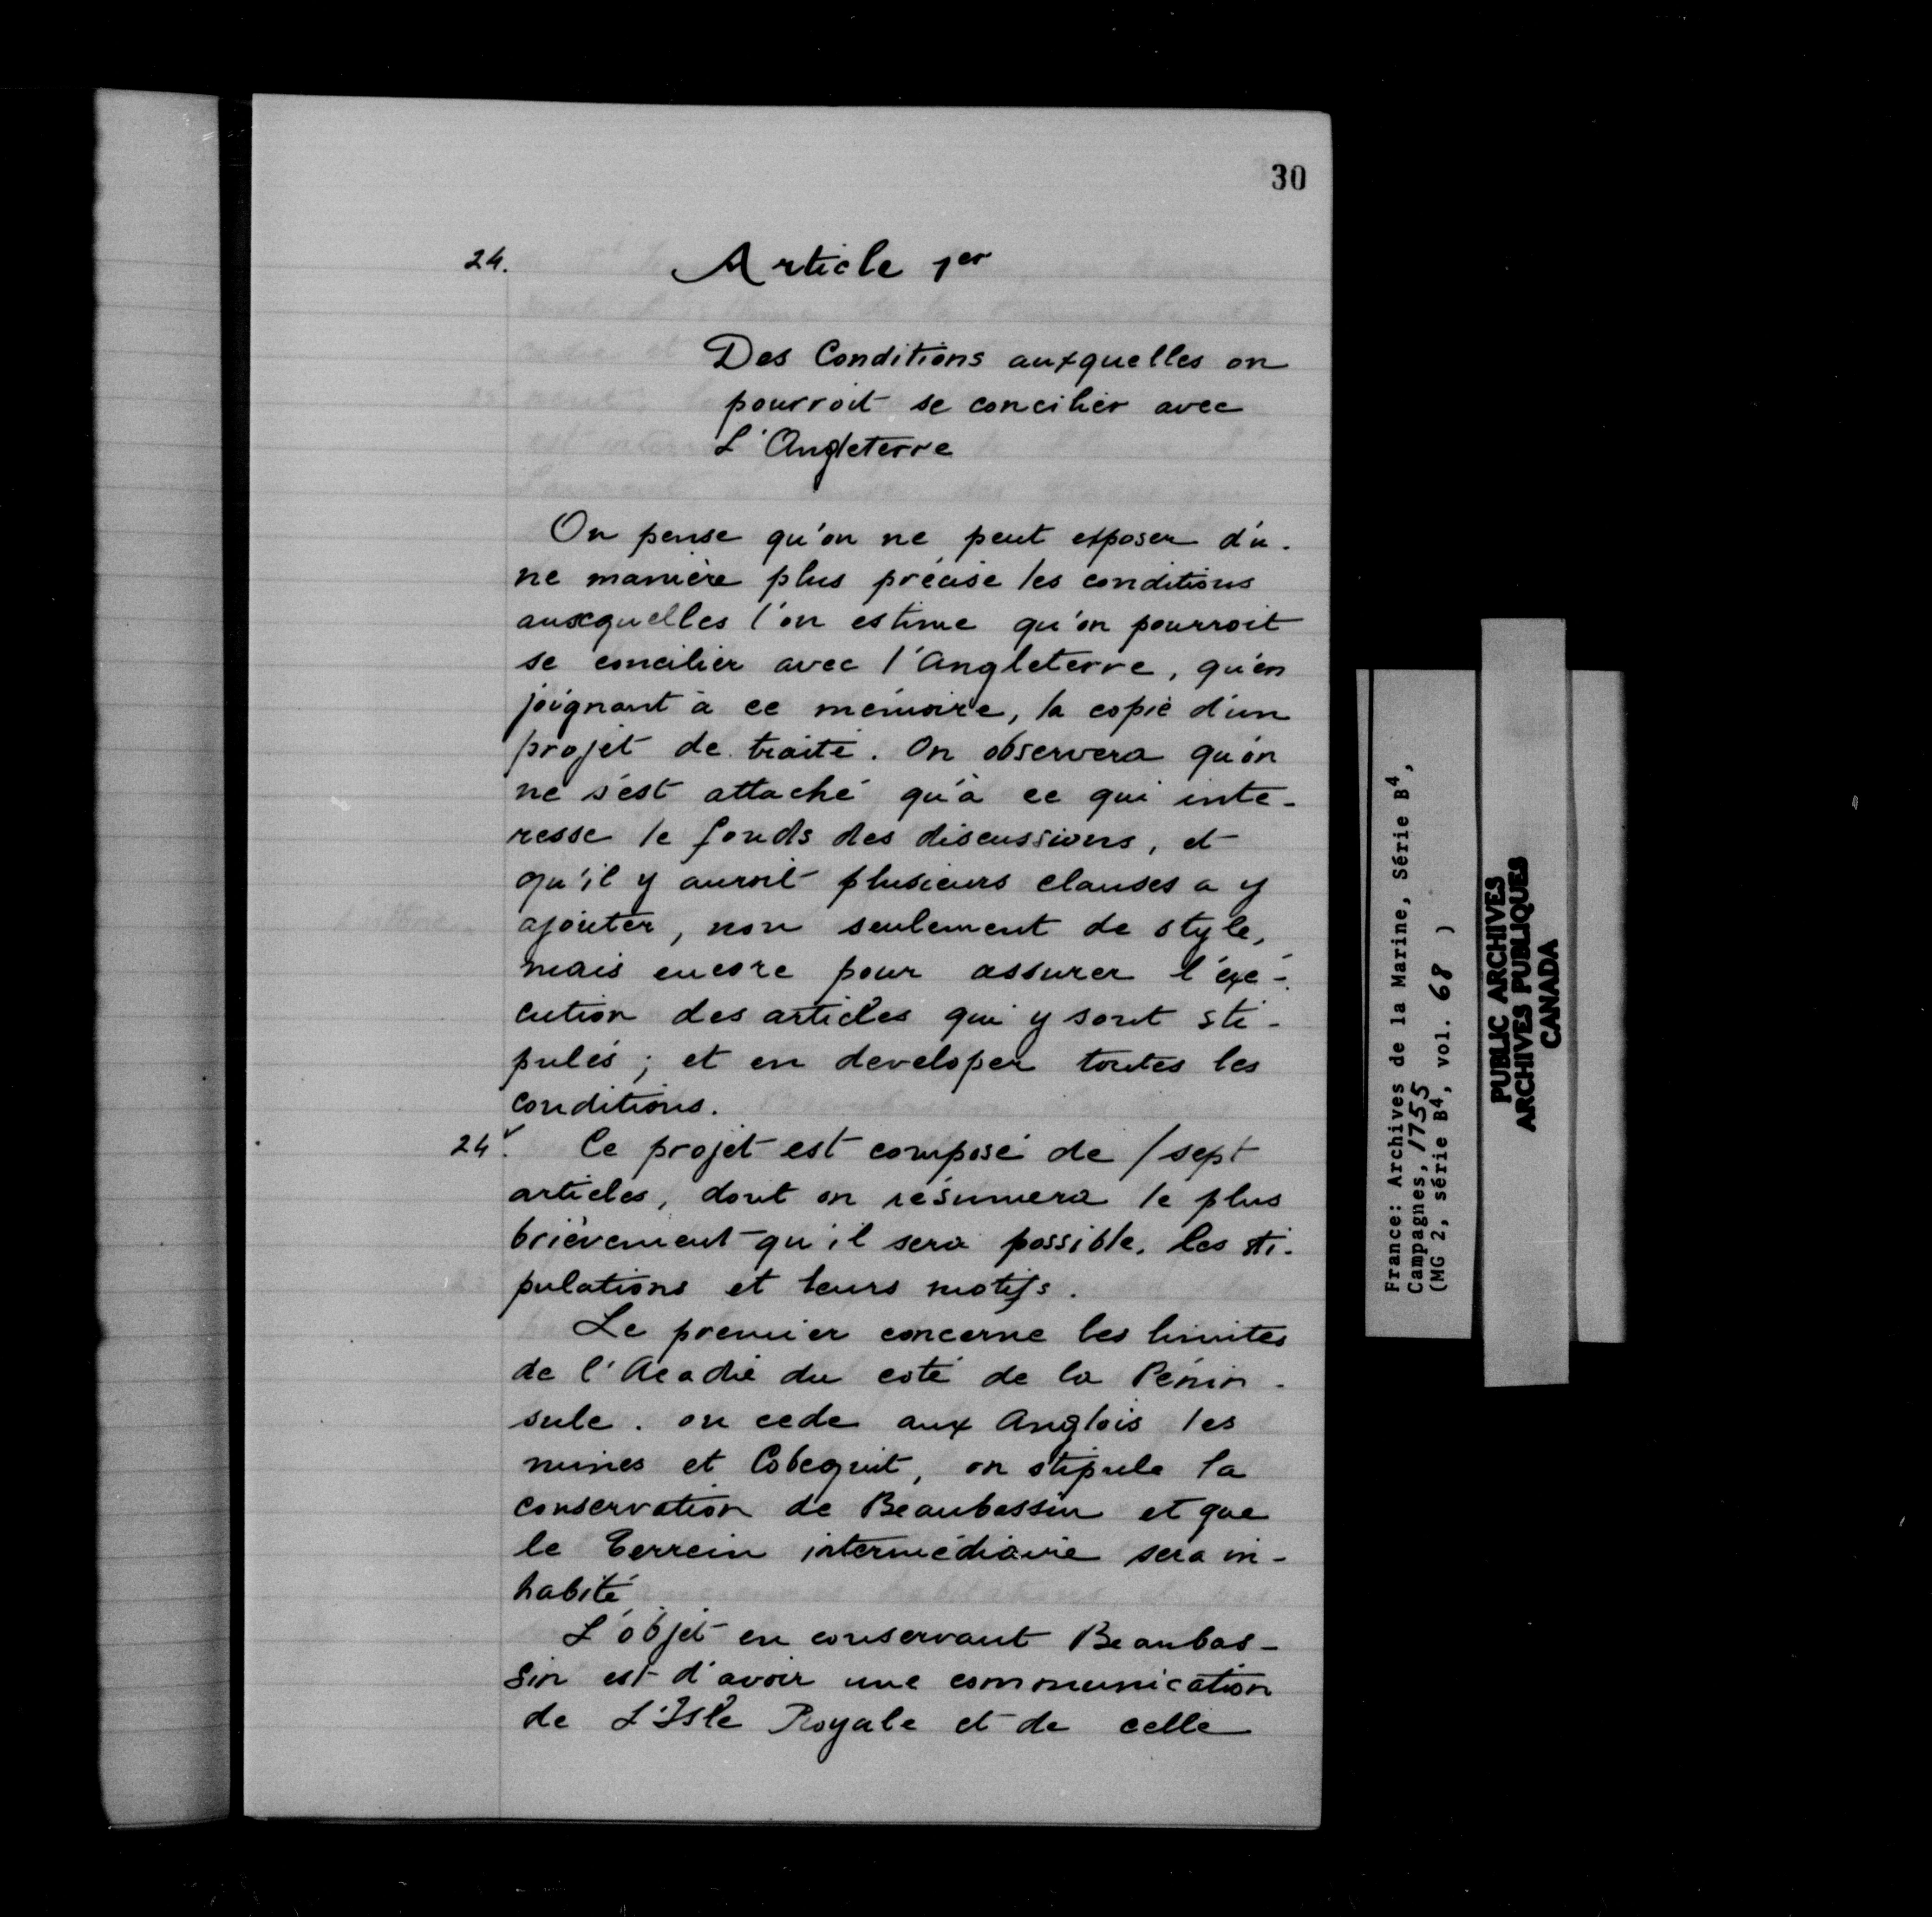 30
24.
Article 1er
Des Conditions auxquelles on
pourroit se concilier avec
L'Angleterre
On pense qu'on ne peut exposer d'u-
ne manière plus précise les conditions
auxquelles l'on estime qu'on pourroit
se concilier avec l'Angleterre, qu'en
joignant à ce mémoire, la copie d'un
projet de traité. On observera qu'on
ne s'est attaché qu'à ce qui inte-
resse le fonds des discussions, et
qu'il y auroit plusieurs clauses a y
ajouter, non seulement de style,
mais encore pour assurer l'exé-
cution des articles qui y sont sti-
pulés; et en developer toutes les
conditions.
24v. Ce projet est composé de / sept
articles, dont on résumera le plus
brièvement qu'il sera possible, les sti-
pulations et leurs motifs.
Le premier concerne les limites
de l'Acadie du coté de la Pénin-
sule. on cede aux Anglois les
mines et Cobequit, on stipule la
conservation de Beaubassin et que
le Terrein intermédiaire sera in-
habité
L'objet en conservant Beaubas-
sin est d'avoir une communication
de L'Isle Royale et de celle
France: Archives de la Marine, Série B4,
Campagnes, 1755
(MG 2, série B4, vol. 68 )
PUBLIC ARCHIVES
ARCHIVES PUBLIQUES
CANADA